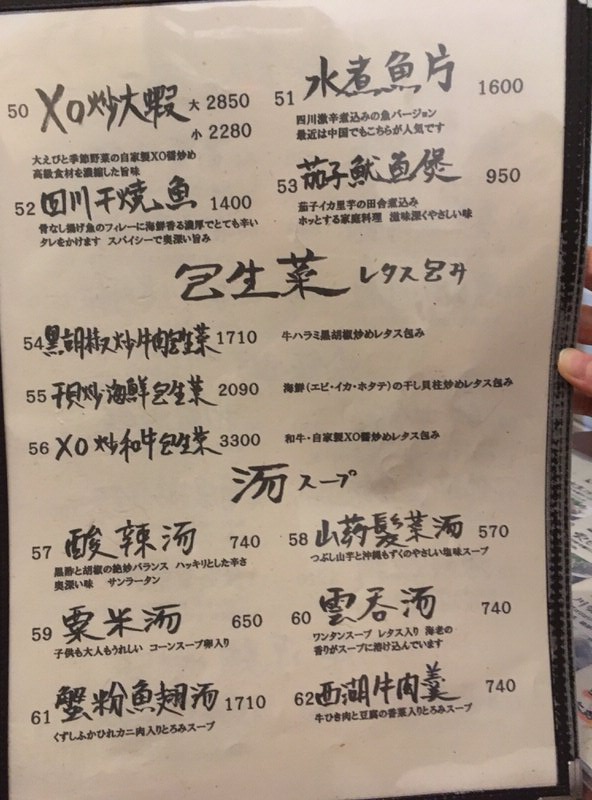 50 XO炒大蝦 大 2850
小 2280
大えびと季節野菜の自家製XO醬炒め
高級食材を濃縮した旨味
51 水煮魚片 1600
四川激辛煮込みの魚バージョン
最近は中国でもこちらが人気です
52 四川干燒魚 1400
骨なし揚げ魚のフィレーに海鮮香る濃厚でとても辛い
タレをかけます スパイシーで奥深い旨み
53 茄子魷魚煲 950
茄子イカ里芋の田舎煮込み
ホッとする家庭料理 滋味深くやさしい味
包生菜 レタス包み
54 黒胡椒炒牛肉包生菜 1710 牛ハラミ黒胡椒炒めレタス包み
55 干貝炒海鮮包生菜 2090 海鮮(エビ・イカ・ホタテ)の干し貝柱炒めレタス包み
56 XO炒和牛包生菜 3300 和牛・自家製XO醬炒めレタス包み
湯 スープ
57 酸辣湯 740
黒酢と胡椒の絶妙バランス ハッキリとした辛さ
奥深い味 サンラータン
58 山蒟髮菜湯 570
つぶし山芋と沖縄もずくのやさしい塩味スープ
59 粟米湯 650
子供も大人もうれしい コーンスープ卵入り
60 雲吞湯 740
ワンタンスープ レタス入り 海老の
香りがスープに溶け込んでいます
61 蟹粉魚翅湯 1710
くずしふかひれカニ肉入りとろみスープ
62 西湖牛肉羹 740
牛ひき肉と豆腐の香菜入りとろみスープ